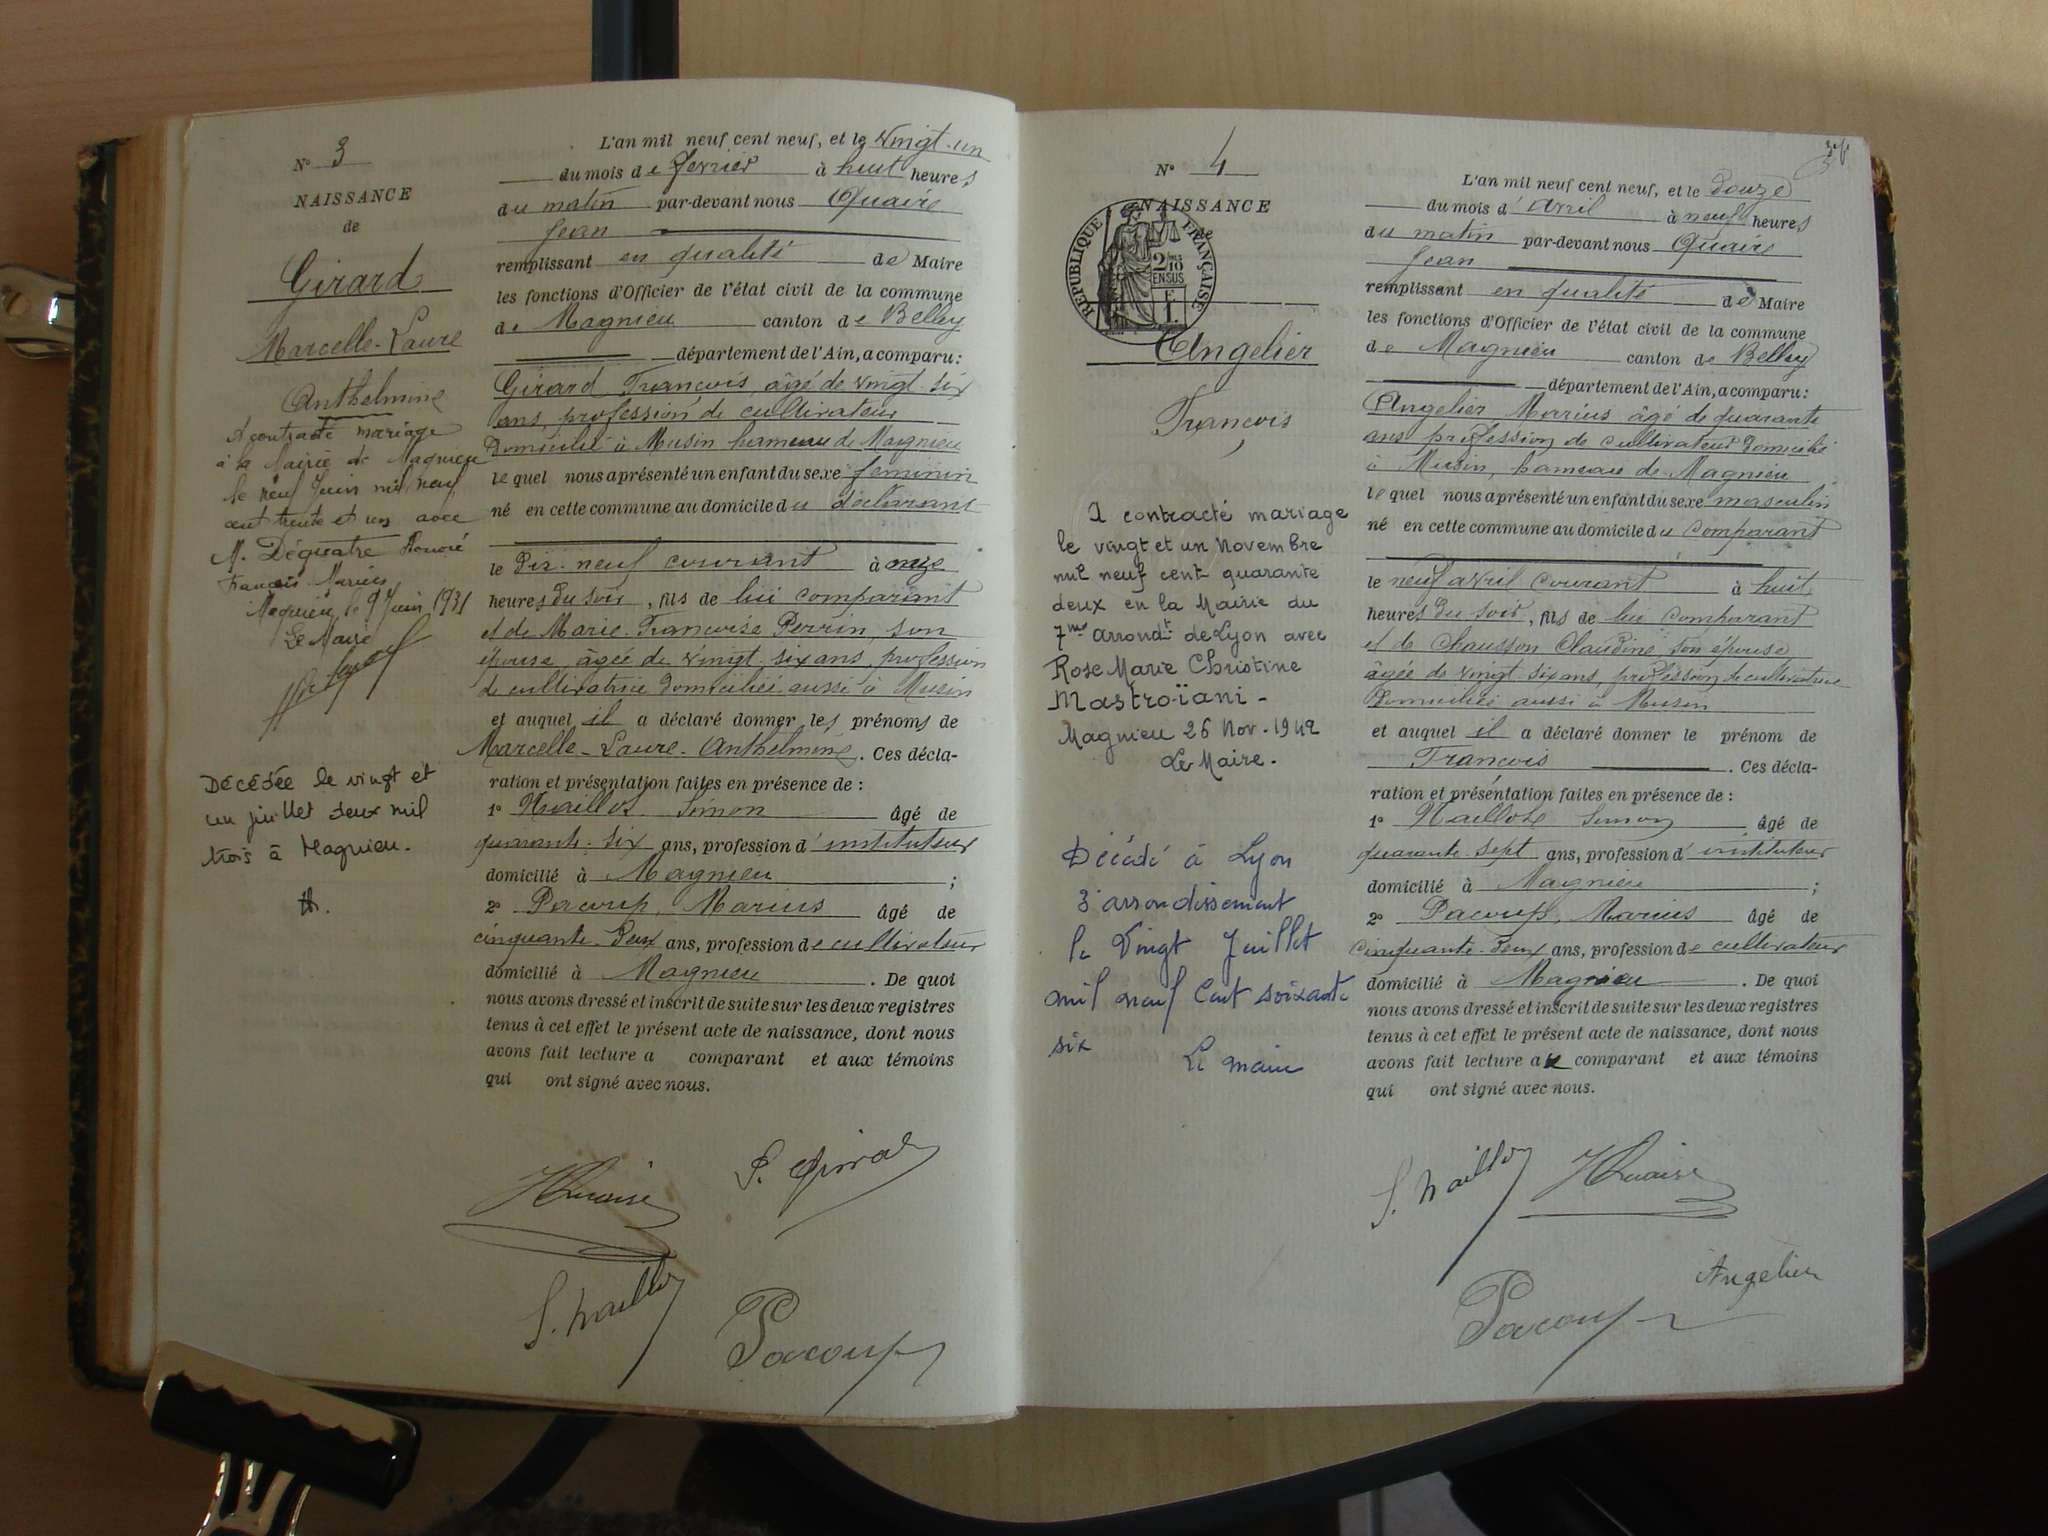 N° 3
NAISSANCE
de
Girard
Marcelle-Laure
Anthelmine
A contracté mariage
à la Mairie de Magnieu
le neuf Juin mil neuf
cent trente et un avec
M. Déquatre Honoré
François Marius
Magnieu le 9 Juin 1931
Le Maire
Décédée le vingt et
un juillet deux mil
trois à Magnieu.
L'an mil neuf cent neuf, et le vingt-un
du mois de février à huit heures
du matin par-devant nous Quaire
Jean
remplissant en qualité de Maire
les fonctions d'Officier de l'état civil de la commune
de Magnieu canton de Belley
département de l'Ain, a comparu:
Girard François, âgé de vingt-six
ans, profession de cultivateur
domicilié à Musin hameau de Magnieu
lequel nous a présenté un enfant du sexe féminin
né en cette commune au domicile du déclarant
le dix-neuf courant à onze
heures du soir, fils de lui comparant
et de Marie-Françoise Perrin, son
épouse, âgée de vingt-six ans, profession
de cultivatrice domiciliée aussi à Musin
et auquel il a déclaré donner les prénoms de
Marcelle-Laure-Anthelmine. Ces décla-
ration et présentation faites en présence de:
1° Naillod Simon âgé de
quarante-six ans, profession d'instituteur
domicilié à Magnieu ;
2° Pacoup, Marius âgé de
cinquante-deux ans, profession de cultivateur
domicilié à Magnieu. De quoi
nous avons dressé et inscrit de suite sur les deux registres
tenus à cet effet le présent acte de naissance, dont nous
avons fait lecture a comparant et aux témoins
qui ont signé avec nous.
JQuaire
F. Girard
S. Naillod
Pacoup
N° 4
NAISSANCE
de
RÉPUBLIQUE FRANÇAISE
2/10
EN SUS
Angelier
François
A contracté mariage
le vingt et un Novembre
mil neuf cent quarante
deux en la Mairie du
7me arrondt de Lyon avec
Rose Marie Christine
Mastroïani -
Magnieu 26 Nov. 1942
Le Maire.
Décédé à Lyon
3 arrondissement
le Vingt Juillet
mil neuf Cent soixante
six
Le maire
L'an mil neuf cent neuf, et le douze
du mois d'avril à neuf heures
du matin par-devant nous Quaire
Jean
remplissant en qualité de Maire
les fonctions d'Officier de l'état civil de la commune
de Magnieu canton de Belley
département de l'Ain, a comparu:
Angelier Marius âgé de quarante
ans profession de cultivateur domicilié
à Musin, hameau de Magnieu
lequel nous a présenté un enfant du sexe masculin
né en cette commune au domicile du comparant
le neuf avril courant à huit
heures du soir, fils de lui comparant
et de Chausson Claudine, son épouse
âgée de vingt-six ans, profession de cultivatrice
domiciliée aussi à Musin
et auquel il a déclaré donner le prénom de
François. Ces décla-
ration et présentation faites en présence de:
1° Naillod Simon âgé de
quarante-sept ans, profession d'instituteur
domicilié à Magnieu ;
2° Pacoup, Marius âgé de
cinquante-deux ans, profession de cultivateur
domicilié à Magnieu. De quoi
nous avons dressé et inscrit de suite sur les deux registres
tenus à cet effet le présent acte de naissance, dont nous
avons fait lecture au comparant et aux témoins
qui ont signé avec nous.
S. Naillod
JQuaire
Angelier
Pacoup